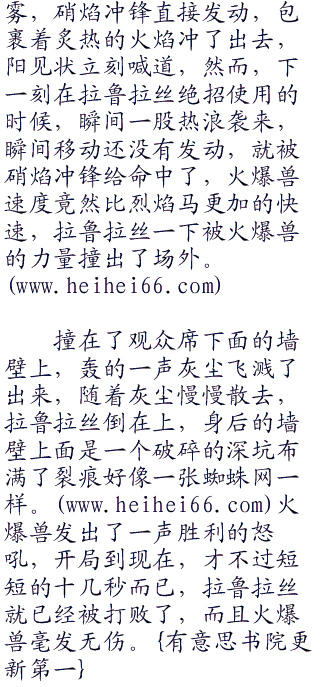 雾，硝焰冲锋直接发动，包
裹着炙热的火焰冲了出去，
阳见状立刻喊道，然而，下
一刻在拉鲁拉丝绝招使用的
时候，瞬间一股热浪袭来，
瞬间移动还没有发动，就被
硝焰冲锋给命中了，火爆兽
速度竟然比烈焰马更加的快
速，拉鲁拉丝一下被火爆兽
的力量撞出了场外。
(www.heihei66.com)
撞在了观众席下面的墙
壁上，轰的一声灰尘飞溅了
出来，随着灰尘慢慢散去，
拉鲁拉丝倒在上，身后的墙
壁上面是一个破碎的深坑布
满了裂痕好像一张蜘蛛网一
样。(www.heihei66.com)火
爆兽发出了一声胜利的怒
吼，开局到现在，才不过短
短的十几秒而已，拉鲁拉丝
就已经被打败了，而且火爆
兽毫发无伤。{有意思书院更
新第一}